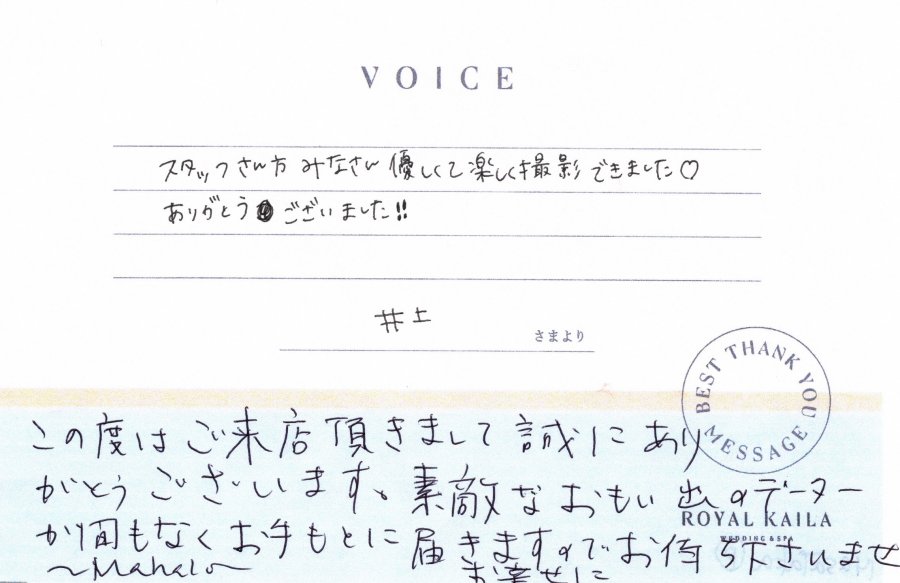 VOICE
スタッフさん方 みなさん 優しくて楽しく撮影できました♡
ありがとう ございました!!
井土
さまより
BEST THANK YOU MESSAGE
この度はご来店頂きまして誠にあり
がとうございます。素敵なおもい出のデーター
ROYAL KAILA
WEDDING & SPA
が間もなくお手もとに届きますのでお待ち下さいませ
〜Mahalo〜
お幸せに